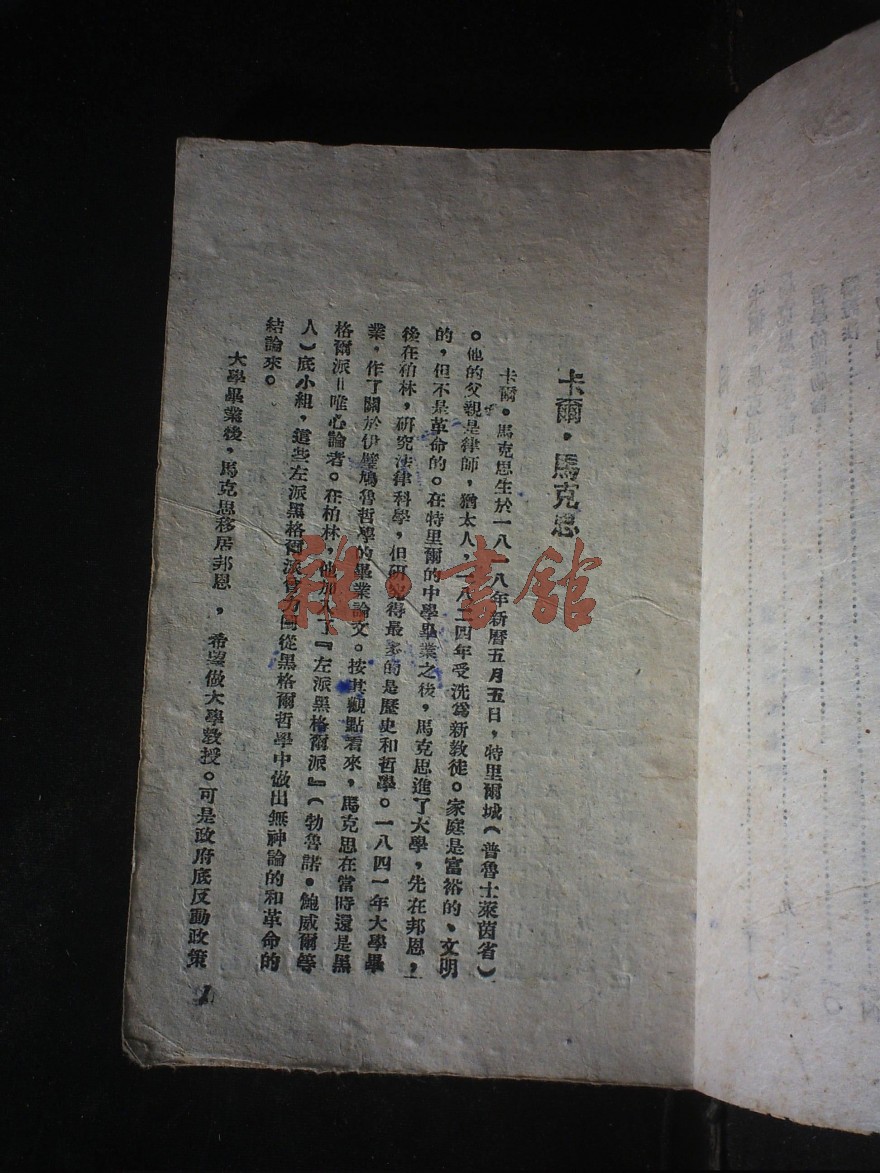 卡爾·馬克思
卡爾·馬克思生於一八一八年新曆五月五日，特里爾城（普魯士萊茵省）
。他的父親是律師，猶太人，一八二四年受洗為新教徒。家庭是富裕的、文明
的，但不是革命的。在特里爾的中學畢業之後，馬克思進了大學，先在邦恩，
後在柏林，研究法律科學，但研究得最多的是歷史和哲學。一八四一年大學畢
業，作了關於伊璧鳩魯哲學的畢業論文。按其觀點看來，馬克思在當時還是黑
格爾派＝唯心論者。在柏林，他加入了『左派黑格爾派』（勃魯諾·鮑威爾等
人）底小組，這些左派黑格爾派會力圖從黑格爾哲學中做出無神論的和革命的
結論來。
大學畢業後，馬克思移居邦恩，希望做大學教授。可是政府底反動政策
1
雜·書館